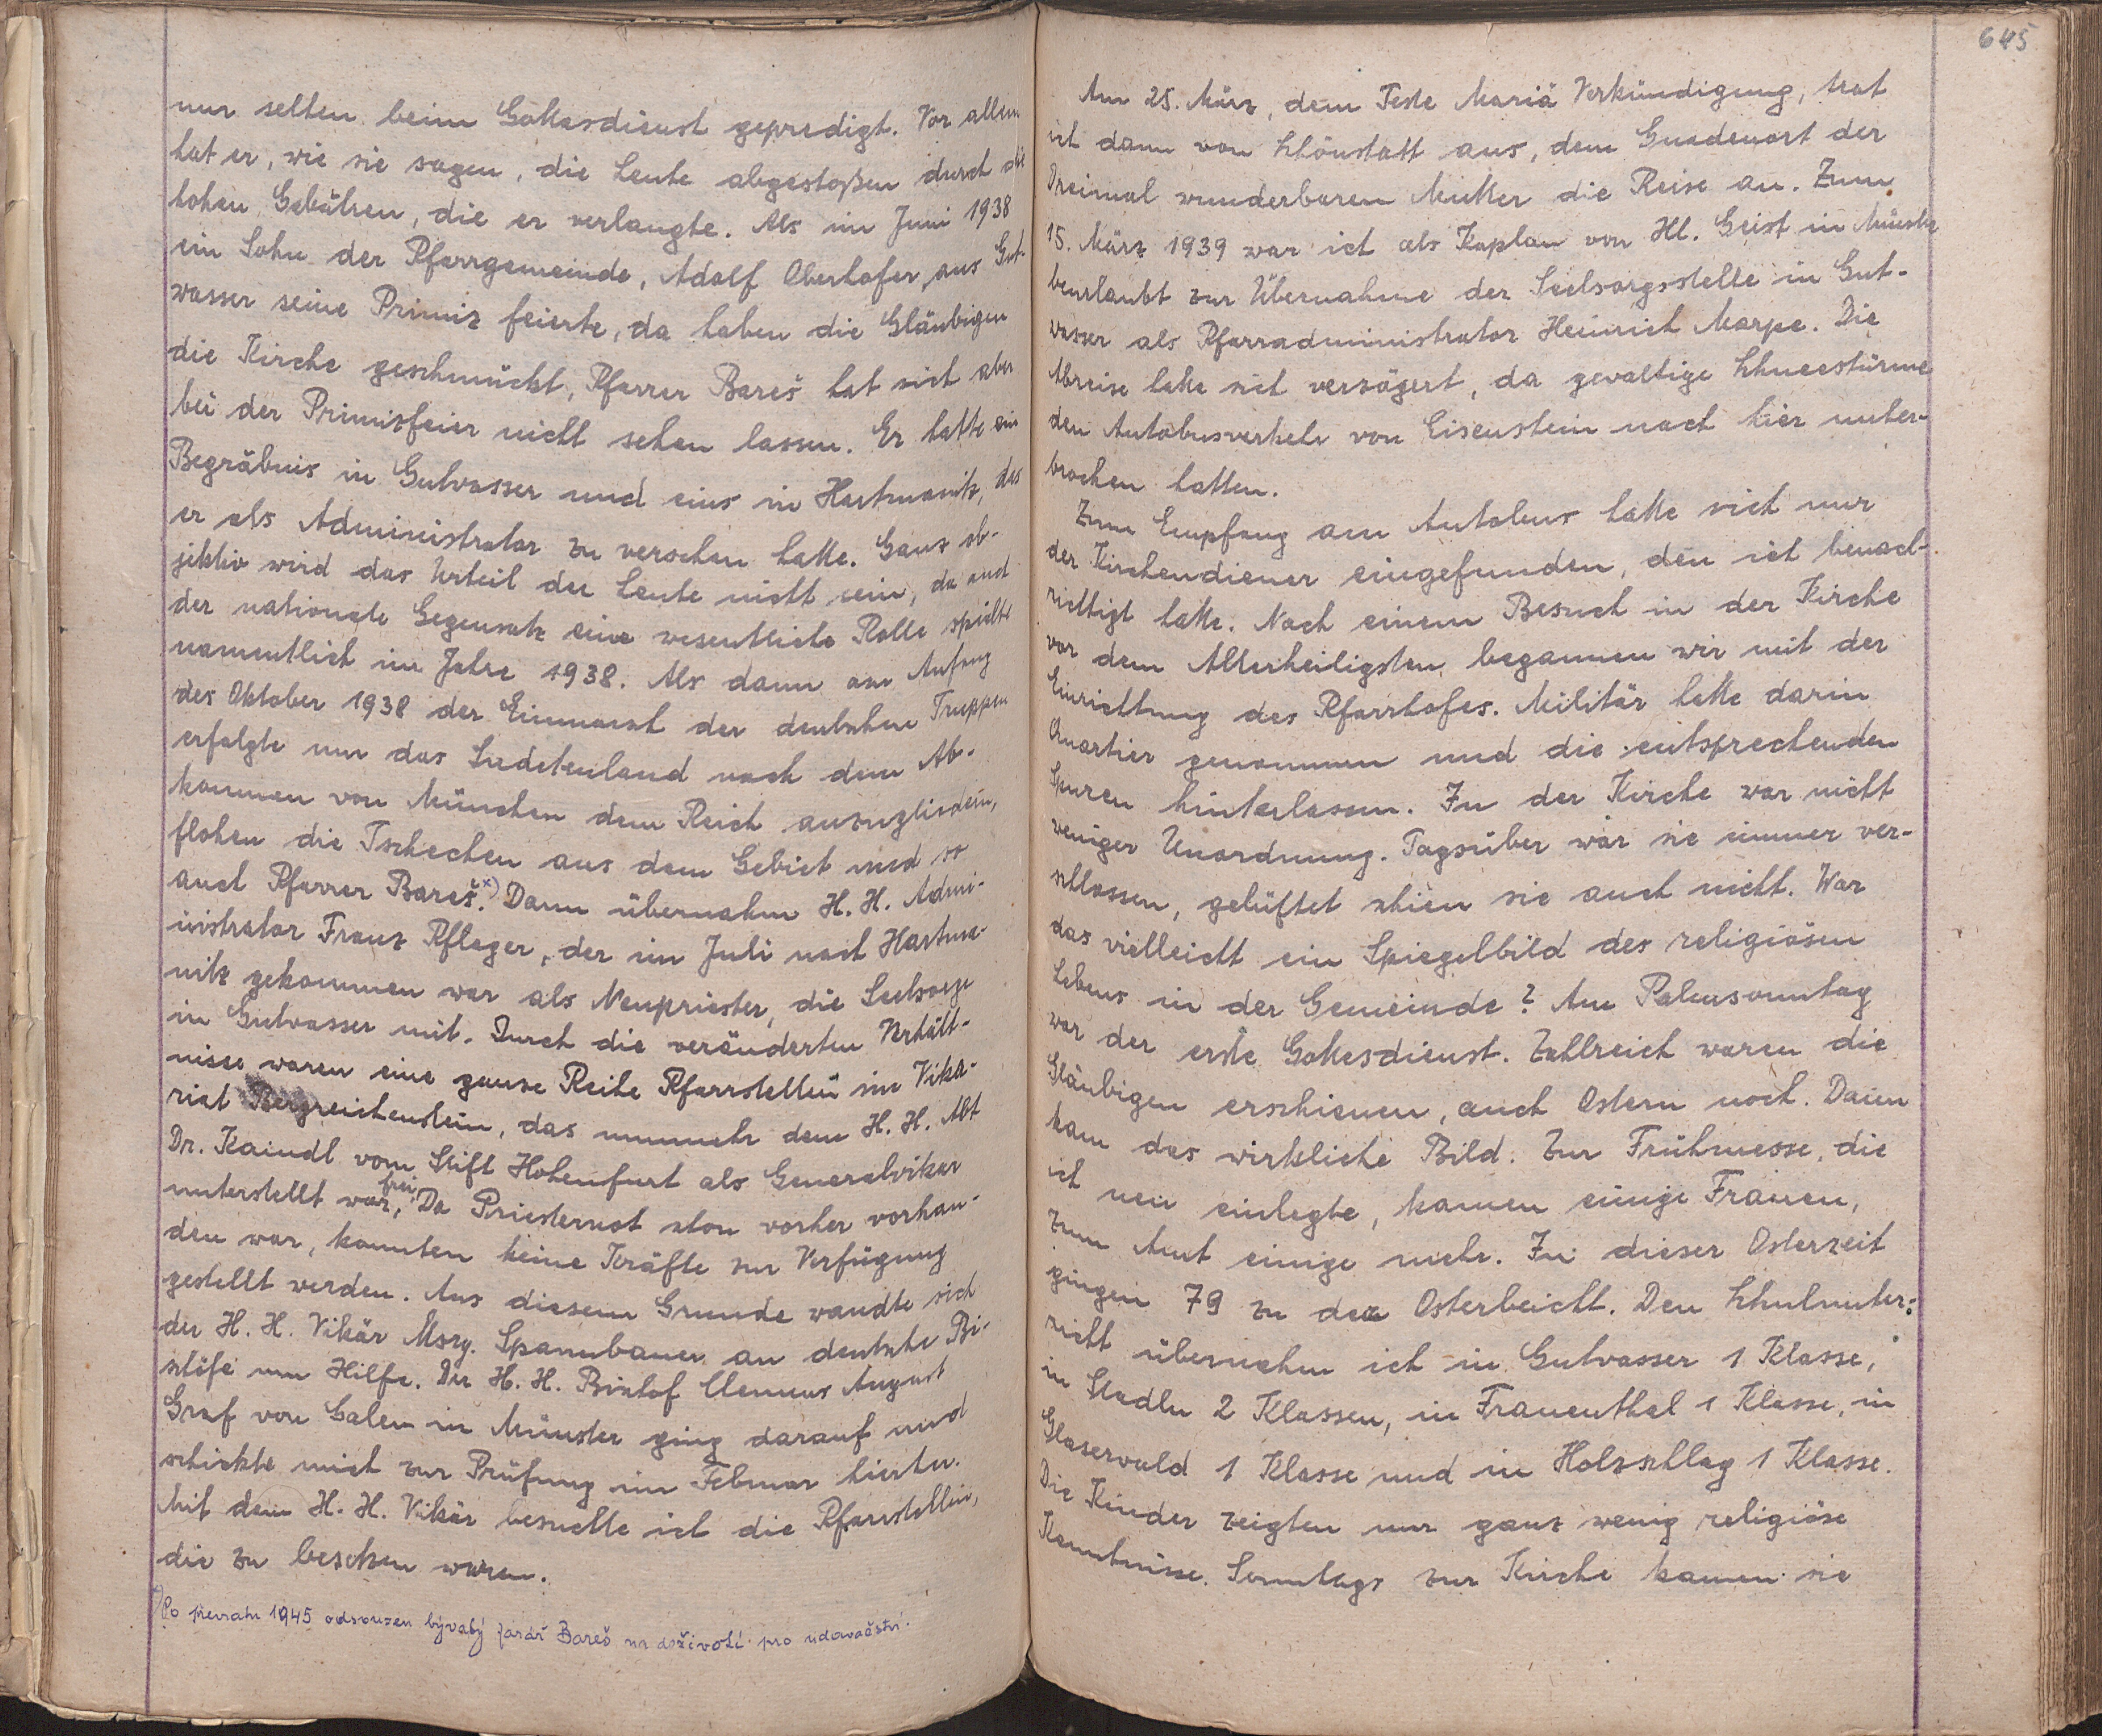 nur selten beim Gottesdienst gepredigt. Vor allem
hat er, wie sie sagen, die Leute abgestoßen durch die
hohen Gebühren, die er verlangte. Als im Juni 1938
ein Sohn der Pfarrgemeinde, Adolf Oberhofer, aus Gut-
wasser seine Primiz feierte, da haben die Gläubigen
die Kirche geschmückt, Pfarrer Bareš hat sich aber
bei der Primizfeier nicht sehen lassen. Er hatte ein
Begräbnis in Gutwasser und eins in Hartmanitz, das
er als Administrator zu versehen hatte. Ganz ob-
jektiv wird das Urteil der Leute nicht sein, da auch
der nationale Gegensatz eine wesentliche Rolle spielte
namentlich im Jahre 1938. Als dann am Anfang
des Oktober 1938 der Einmarsch der deutschen Truppen
erfolgte um das Sudetenland nach dem Ab-
kommen von München dem Reich anzugliedern,
flohen die Tschechen aus dem Gebiet und so
auch Pfarrer Bareš.x) Dann übernahm H. H. Admi-
nistrator Franz Pfleger, der im Juli nach Hartma-
nitz gekommen war als Neupriester, die Seelsorge
in Gutwasser mit. Durch die veränderten Verhält-
nisse waren eine ganze Reihe Pfarrstellen im Vika-
riat Bergreichenstein, das nunmehr dem H. H. Abt
Dr. Kaindl vom Stift Hohenfurt als Generalvikar
unterstellt war, frei. Da Priesternot schon vorher vorhan-
den war, konnten keine Kräfte zur Verfügung
gestellt werden. Aus diesem Grunde wandte sich
der H. H. Vikär Msrg. Spannbauer an deutsche Bi-
schöfe um Hilfe. Der H. H. Bischof Clemens August
Graf von Galen in Münster ging darauf und
schickte mich zur Prüfung im Februar hierher.
Mit dem H. H. Vikär besuchte ich die Pfarrstellen,
die zu besetzen waren.
x) Po převratu 1945 odsouzen bývalý farář Bareš na doživotí pro udavačství.
645
Am 25. März, dem Feste Mariä Verkündigung, trat
ich dann von Schönstatt aus, dem Gnadenort der
Dreimal wunderbaren Mutter die Reise an. Zum
15. März 1939 war ich als Kaplan von Hl. Geist in Münster
beurlaubt zur Übernahme der Seelsorgsstelle in Gut-
wasser als Pfarradministrator Heinrich Marpe. Die
Abreise hatte sich verzögert, da gewaltige Schneestürme
den Autobusverkehr von Eisenstein nach hier unter-
brochen hatten.
Zum Empfang am Autobus hatte sich nur
der Kirchendiener eingefunden, den ich benach-
richtigt hatte. Nach einem Besuch in der Kirche
vor dem Allerheiligsten begannen wir mit der
Einrichtung des Pfarrhofes. Militär hatte darin
Quartier genommen und die entsprechenden
Spuren hinterlassen. In der Kirche war nicht
weniger Unordnung. Tagsüber war sie immer ver-
schlossen, gelüftet schien sie auch nicht. War
das vielleicht ein Spiegelbild des religiösen
Lebens in der Gemeinde? Am Palmsonntag
war der erste Gottesdienst. Zahlreich waren die
Gläubigen erschienen, auch Ostern noch. Dann
kam das wirkliche Bild. Zur Frühmesse, die
ich neu einlegte, kamen einige Frauen,
zum Amt einige mehr. In dieser Osterzeit
gingen 79 zu der Osterbeicht. Den Schulunter-
richt übernahm ich in Gutwasser 1 Klasse,
in Stadln 2 Klassen, in Frauenthal 1 Klasse, in
Glaserwald 1 Klasse und in Holzschlag 1 Klasse.
Die Kinder zeigten nur ganz wenig religiöse
Kenntnisse. Sonntags zur Kirche kamen sie